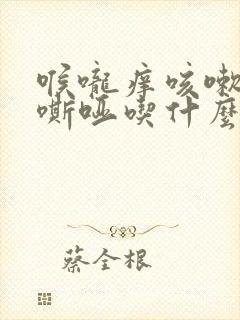 喉嚨痒咳嗽
嘶哑喫什麼
蔡全根